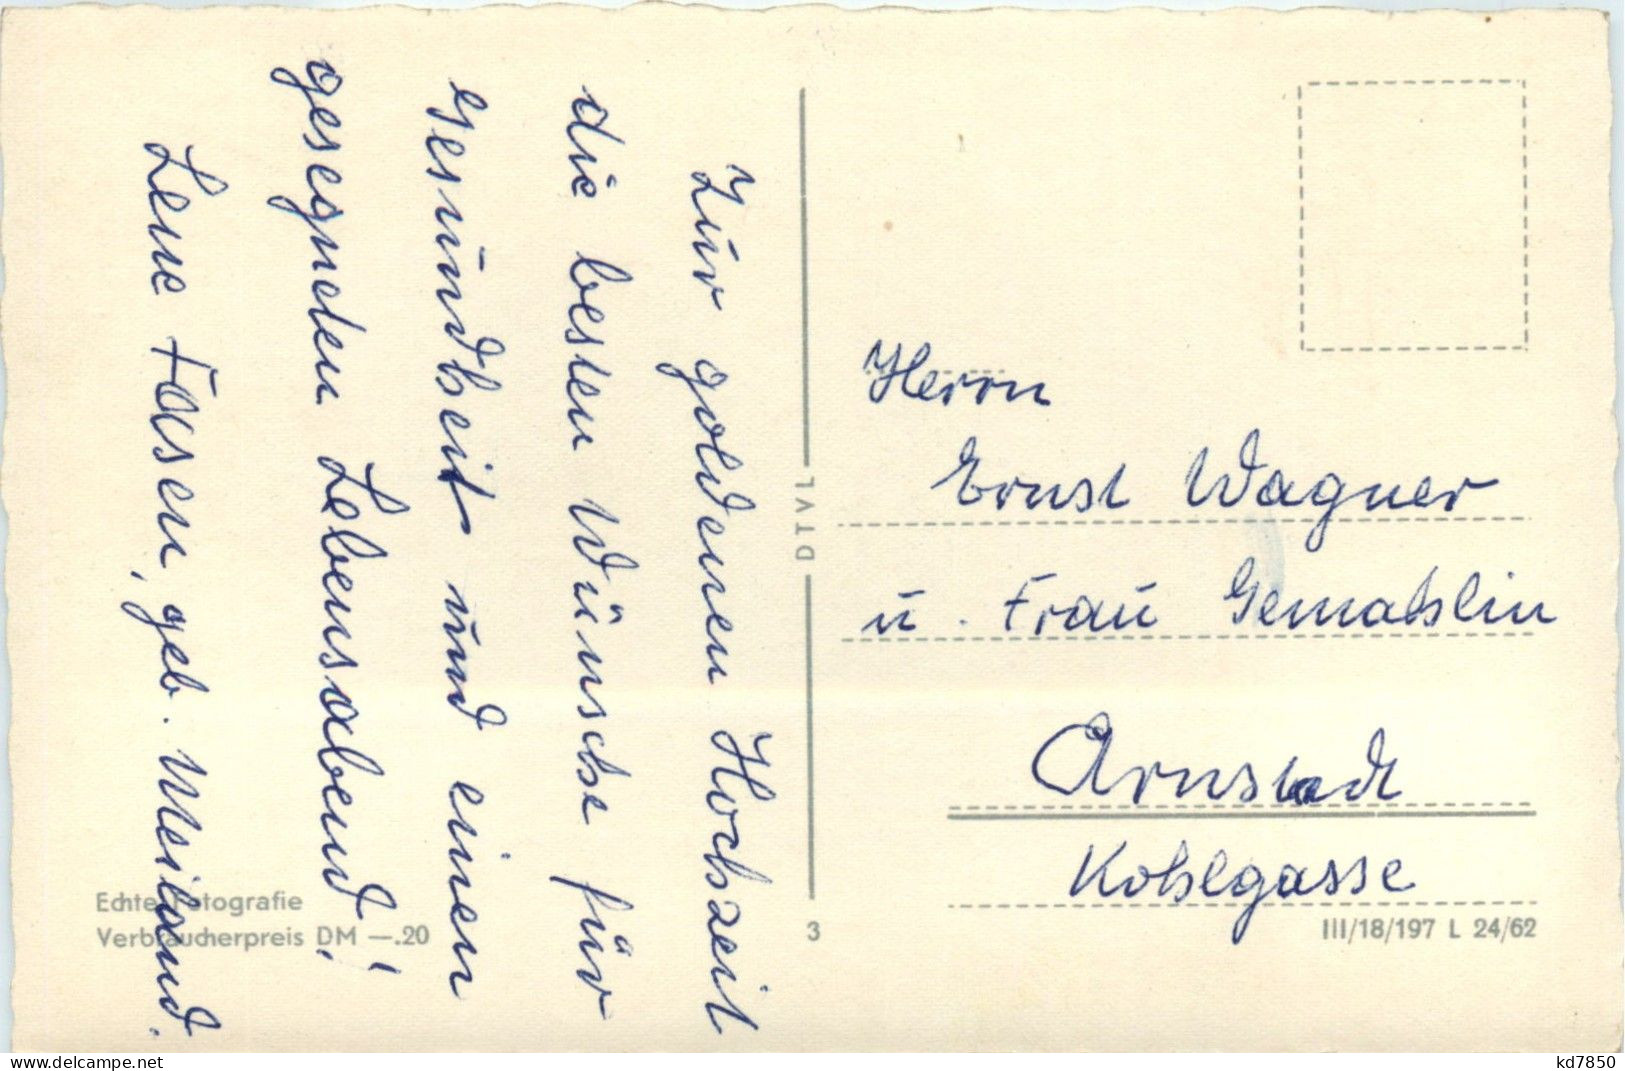 Zur goldenen Hochzeit
die besten Wünsche für
Gesundheit und einen
gesegneten Lebensabend!
Lene Fasen, geb. Meiland.
Echte Fotografie
Verbraucherpreis DM —.20
DTVL
3
Herrn
Ernst Wagner
u. Frau Gemahlin
Arnstadt
Kohlgasse
III/18/197 L 24/62
www.delcampe.net
kd7850